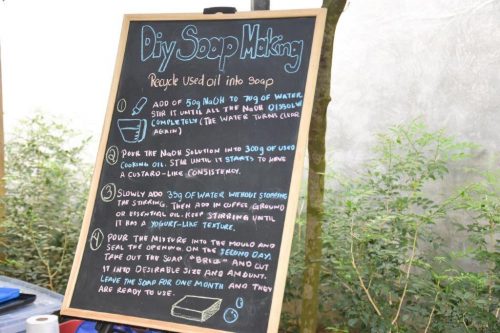 Diy Soap Making
Recycle used oil into soap
1 ADD OF 50g NaOH TO 70g OF WATER
STIR IT UNTIL ALL THE NaOH DISSOLVE
COMPLETELY (THE WATER TURNS CLEAR
AGAIN)
2 POUR THE NaOH SOLUTION INTO 300g OF USED
COOKING OIL. STIR UNTIL IT STARTS TO HAVE
A CUSTARD-LIKE CONSISTENCY.
3 SLOWLY ADD 35g OF WATER WITHOUT STOPPING
THE STIRRING. THEN ADD IN COFFEE GROUND
OR ESSENTIAL OIL. KEEP STIRRING UNTIL
IT HAS A YOGURT-LIKE TEXTURE.
4 POUR THE MIXTURE INTO THE MOULD AND
SEAL THE OPENING. ON THE SECOND DAY,
TAKE OUT THE SOAP "BRICK" AND CUT
IT INTO DESIRABLE SIZE AND AMOUNT.
LEAVE THE SOAP FOR ONE MONTH AND THEY
ARE READY TO USE.